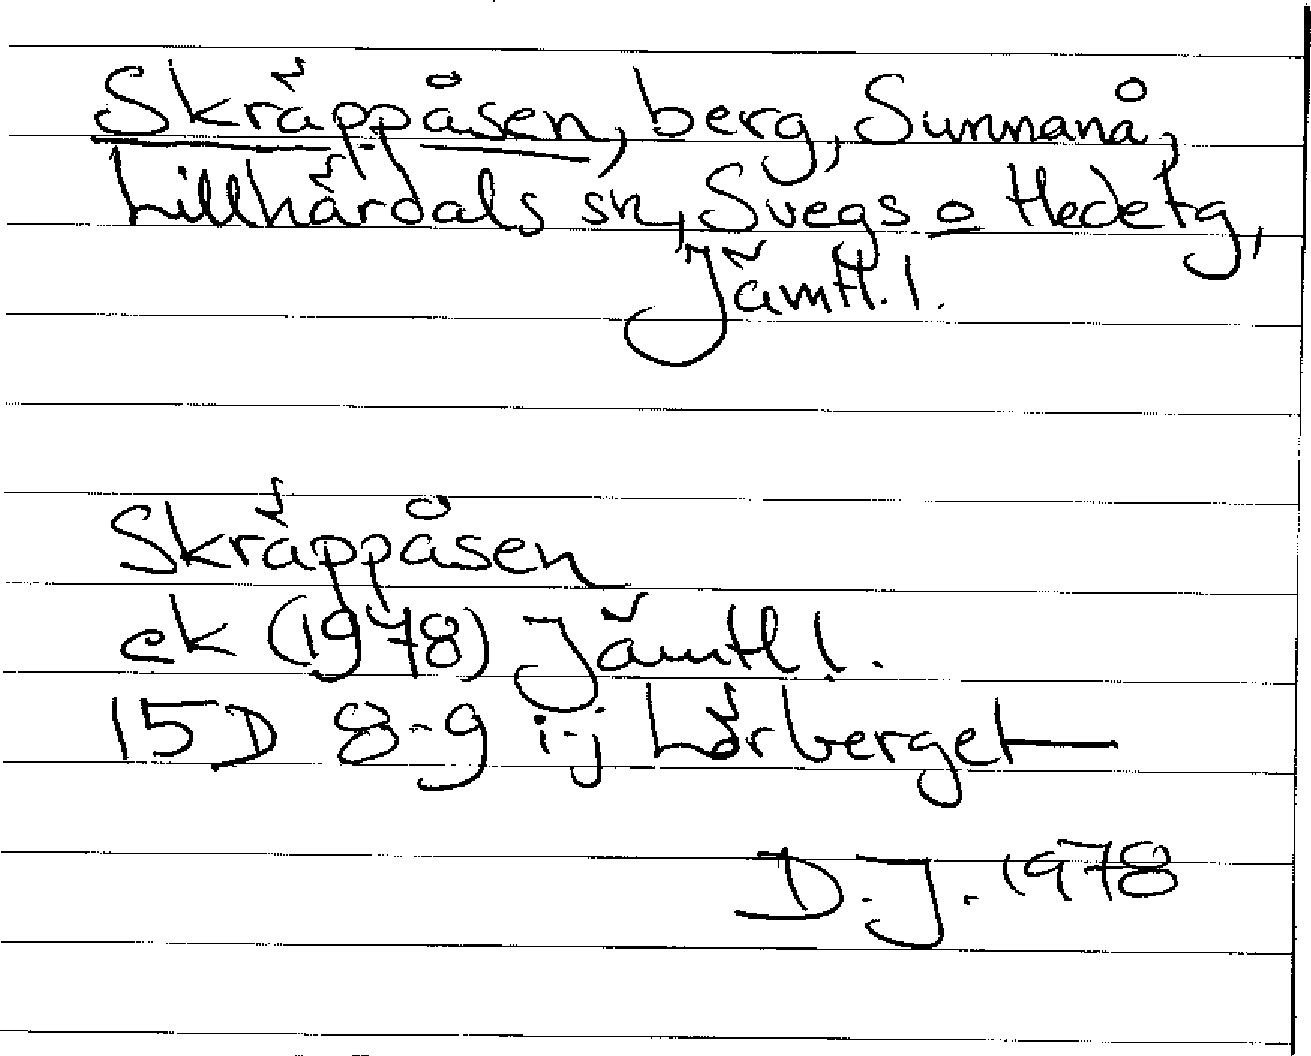 Skräppåsen, berg, Sunnanå,
Lillhärdals sn, Svegs o Hede tg,
Jämtl. l.
Skräppåsen
ek (1978) Jämtl l.
15D 8-9 i-j Lörberget
D.J. 1978